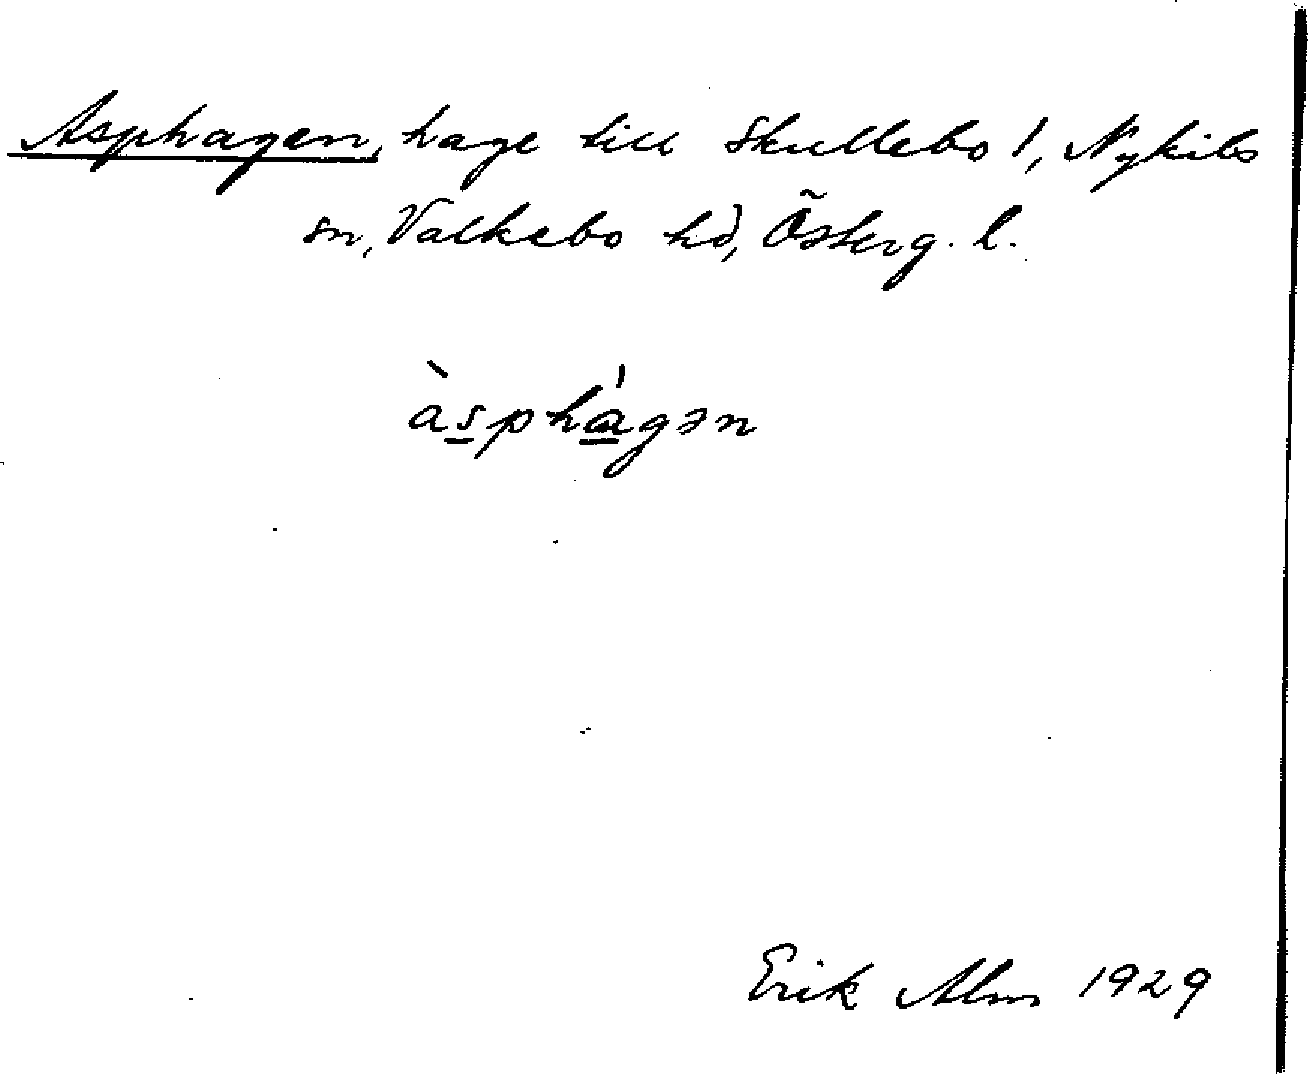 Asphagen, hage till Skullebo 1, Nykils
sn, Valkebo hd, Österg. l.
àsphágən
Erik Alm 1929